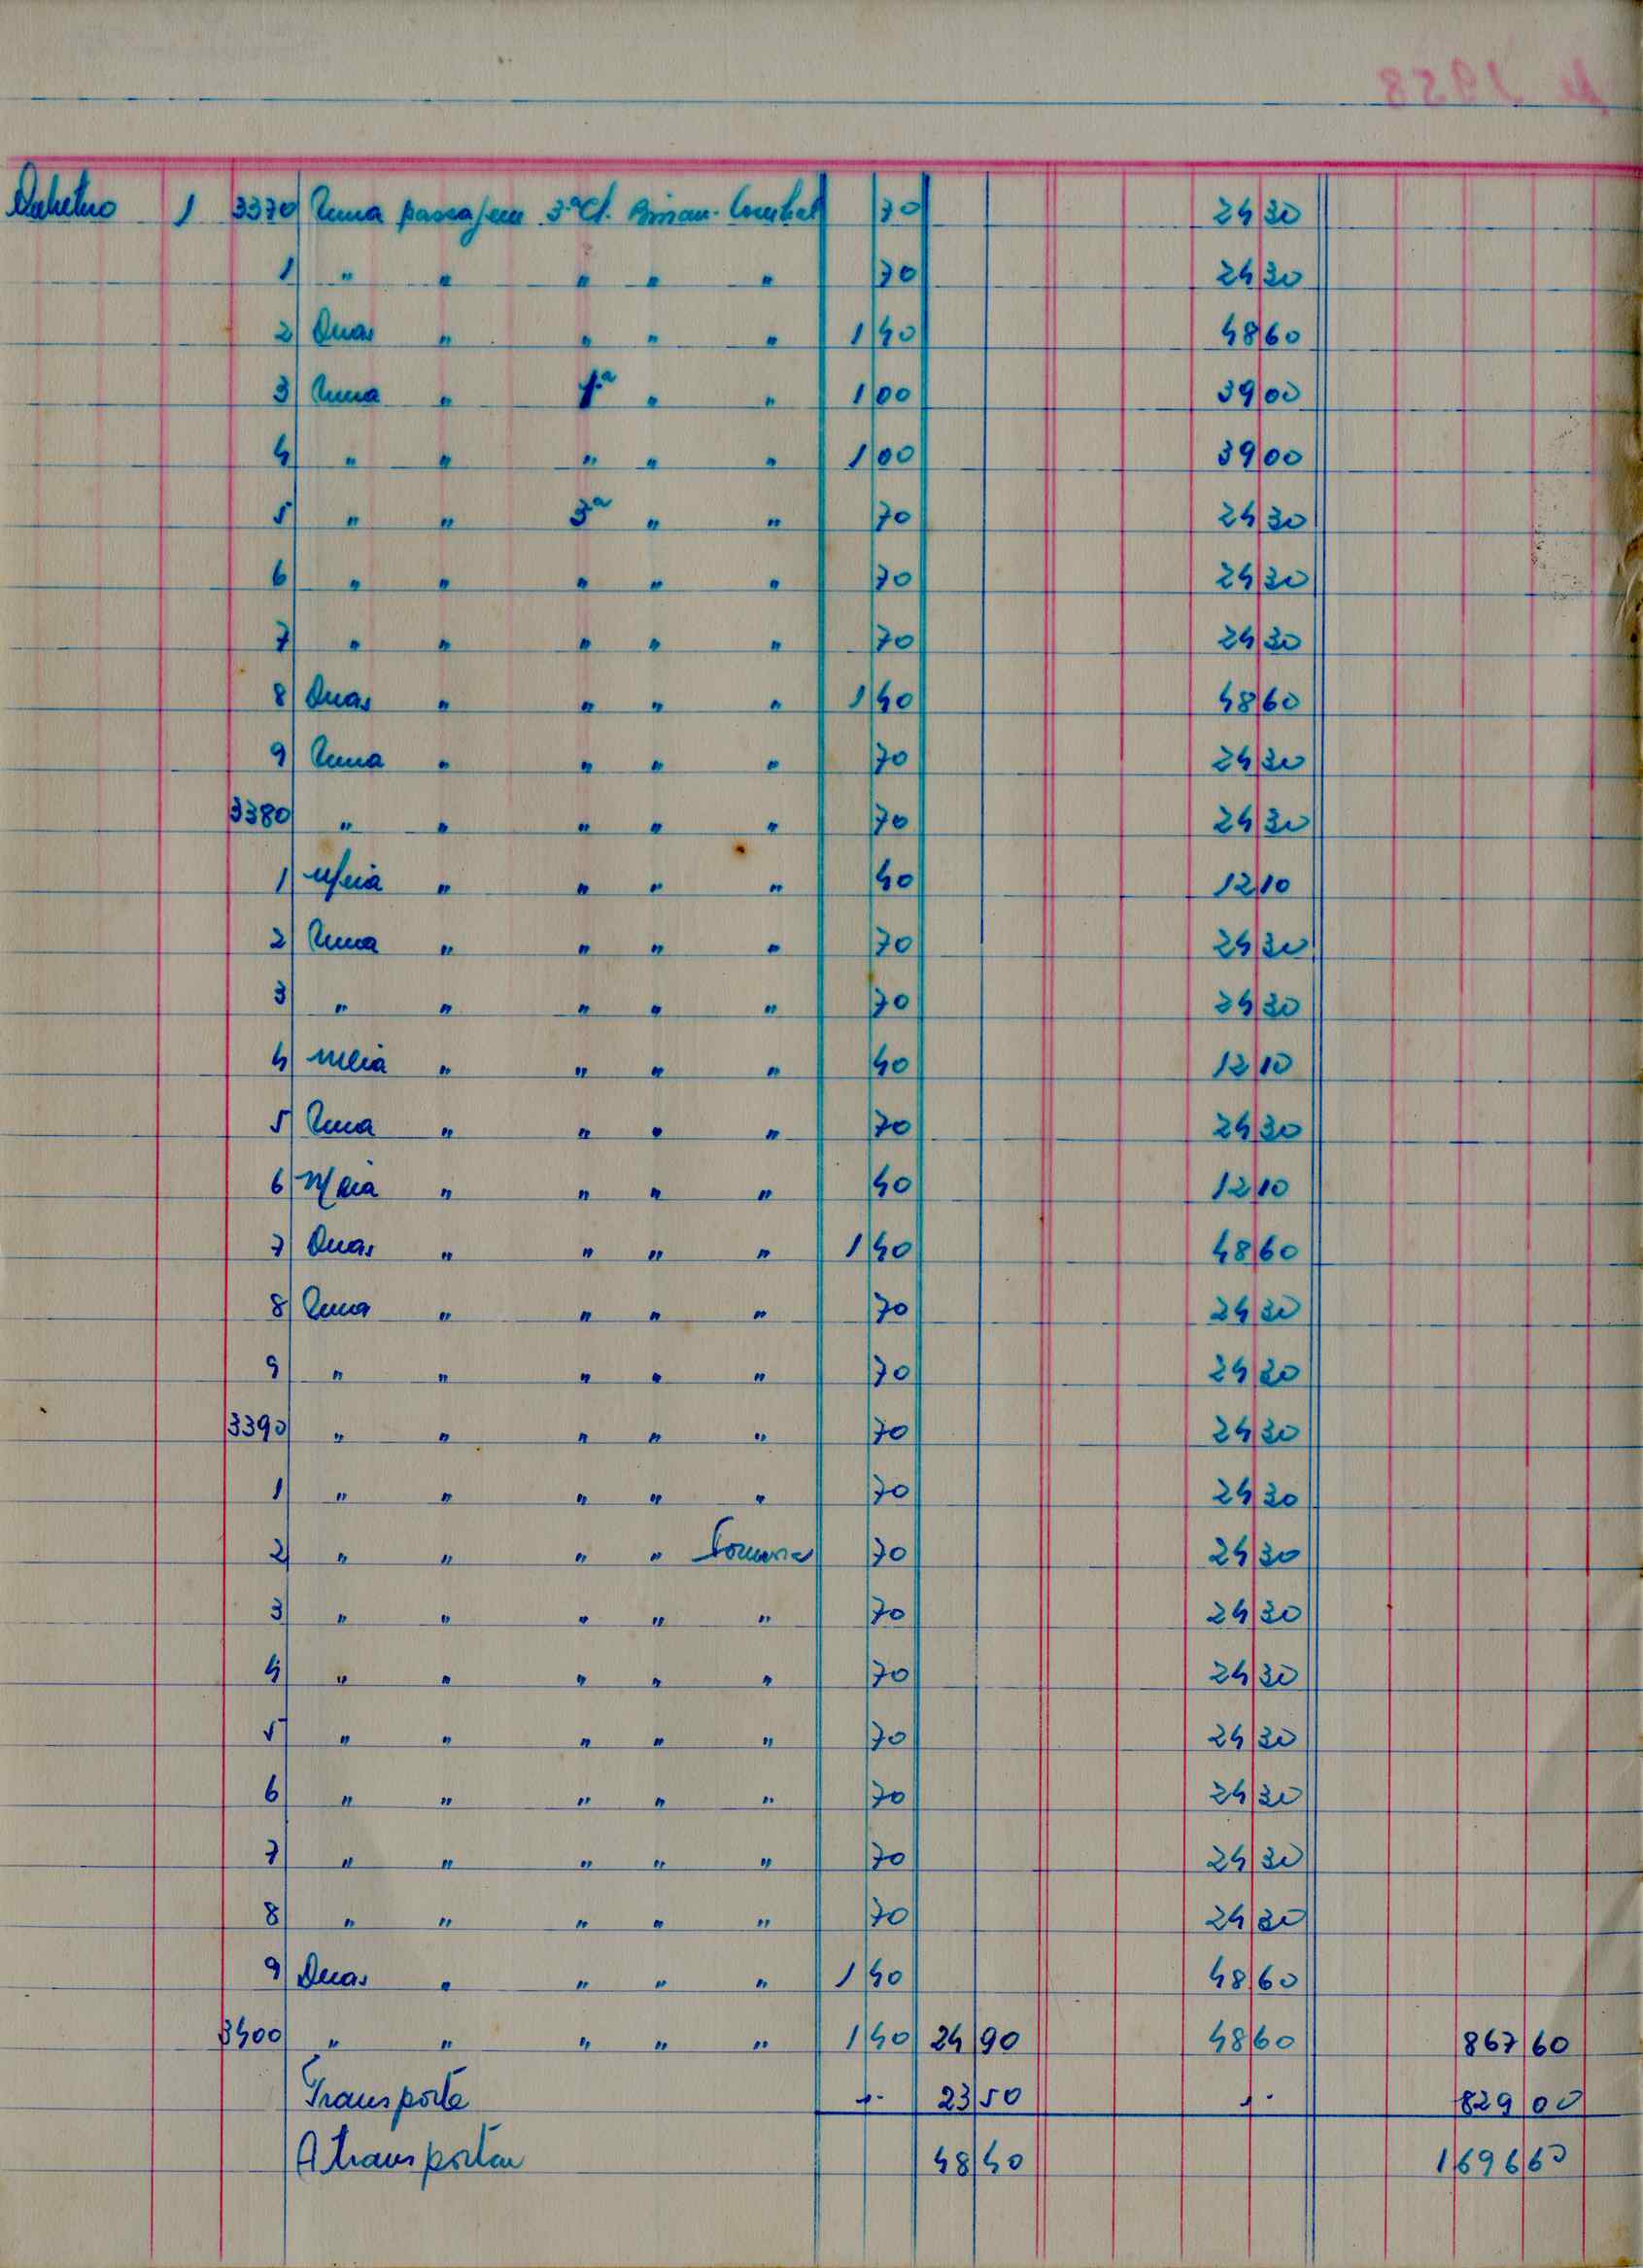 1958
Outubro 1 3370 Uma passagem 3ª Cl. Bissau- 70 24 30
1 " " " " " 70 24 30
2 Duas " " " " 1 40 48 60
3 Uma " 1ª " " 1 00 39 00
4 " " " " " 1 00 39 00
5 " " 3ª " " 70 24 30
6 " " " " " 70 24 30
7 " " " " " 70 24 30
8 Duas " " " " 1 40 48 60
9 Uma " " " " 70 24 30
3380 " " " " " 70 24 30
1 Meia " " " " 40 12 10
2 Uma " " " " 70 24 30
3 " " " " " 70 24 30
4 Meia " " " " 40 12 10
5 Uma " " " " 70 24 30
6 Meia " " " " 40 12 10
7 Duas " " " " 1 40 48 60
8 Uma " " " " 70 24 30
9 " " " " " 70 24 30
3390 " " " " " 70 24 30
1 " " " " " 70 24 30
2 " " " " 70 24 30
3 " " " " " 70 24 30
4 " " " " " 70 24 30
5 " " " " " 70 24 30
6 " " " " " 70 24 30
7 " " " " " 70 24 30
8 " " " " " 70 24 30
9 Duas " " " " 1 40 48 60
3400 " " " " " 1 40 24 90 48 60 867 60
Transporte 23 50 829 00
A transportar 48 40 1696 60